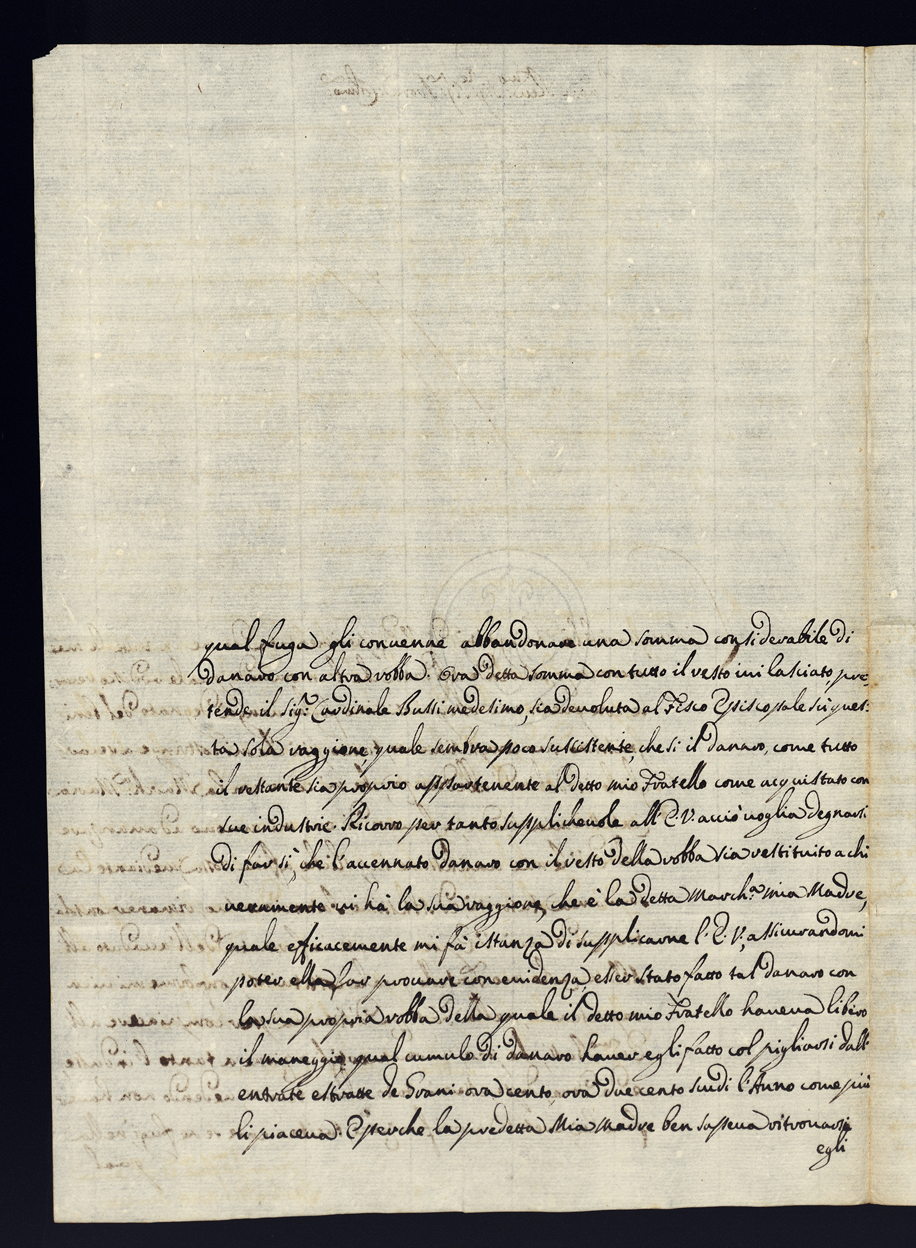 qual fuga gli conuenne abbandonare una somma considerabile di
danaro con altra robba. Ora detta somma con tutto il resto iui lasciato pre=
tende il Sig.r Cardinale Bussi medesimo, sia deuoluta al Fisco Episcopale sù ques=
ta sola raggione, quale sembra poco sussistente, che si il danaro, come tutto
il restante sia proprio appartenente al detto mio Fratello come acquistato con
sue industrie. Ricorro per tanto supplicheuole all'E.V. acciò uoglia degnarsi
di far sì, che l'accennato danaro con il resto della robba sia restituito a chi
ueramente ui hà la sua raggione, che è la detta March.a mia Madre,
quale efficacemente mi fà istanza di supplicarne l'E.V. assicurandomi
poter ella far prouare con euidenza, esser stato fatto tal danaro con
la sua propria robba della quale il detto mio Fratello haueua libero
il maneggio, qual cumulo di danaro hauer egli fatto col pigliarsi dall'
entrate estratte de Grani ora cento, ora duecento scudi l'Anno come più
li piaceua. E perche la predetta Mia Madre ben sapeua ritrouarsi
egli